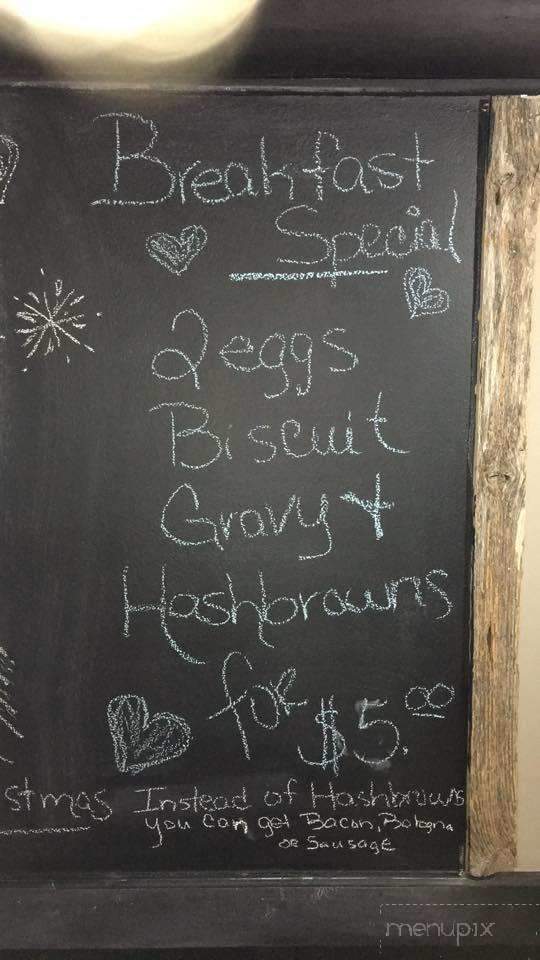 Breakfast
Special
2 eggs
Biscuit
Gravy &
Hashbrowns
for $5.00
stmas
Instead of Hashbrowns
you can get Bacon, Bologna
or Sausage
menupix